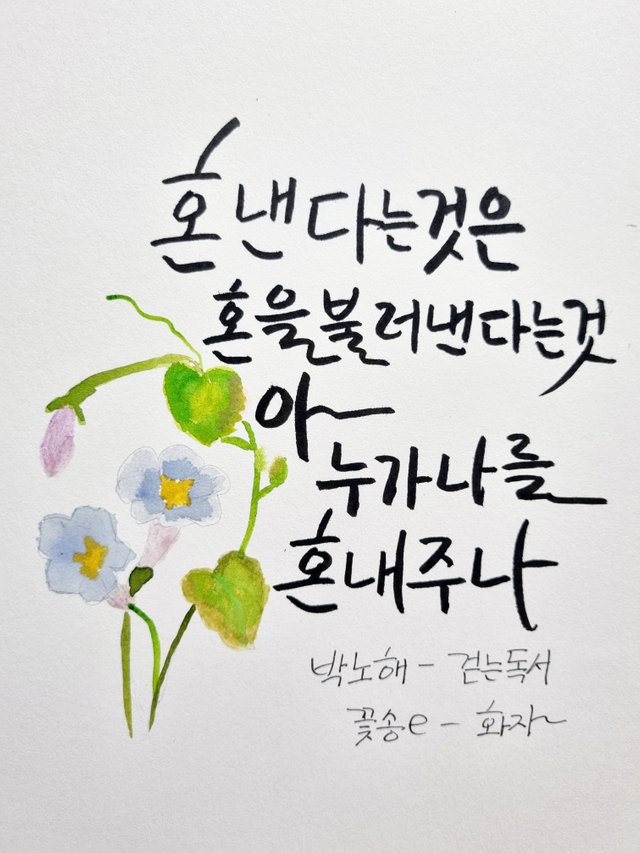 혼낸다는것은
혼을불러낸다는것
아~
누가나를
혼내주나
박노해 - 걷는독서
꽃송e - 화자~